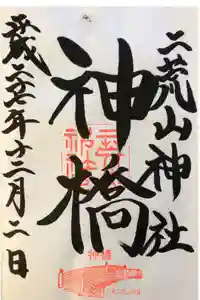 二荒山神社
神橋
平成二十七年十二月二日
神橋